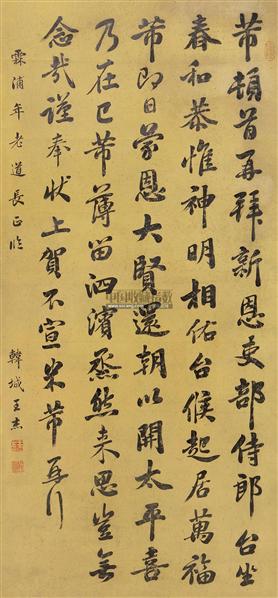 芾頓首再拜新恩吏部侍郎台坐
春和恭惟神明相佑台候起居萬福
芾即日蒙恩大賢還朝以開太平喜
乃在己芾薄留泗濱烝然來思豈無
念哉謹奉狀上賀不宣米芾再行
霖浦年老道長正臨
韓城王杰
中国收藏指数